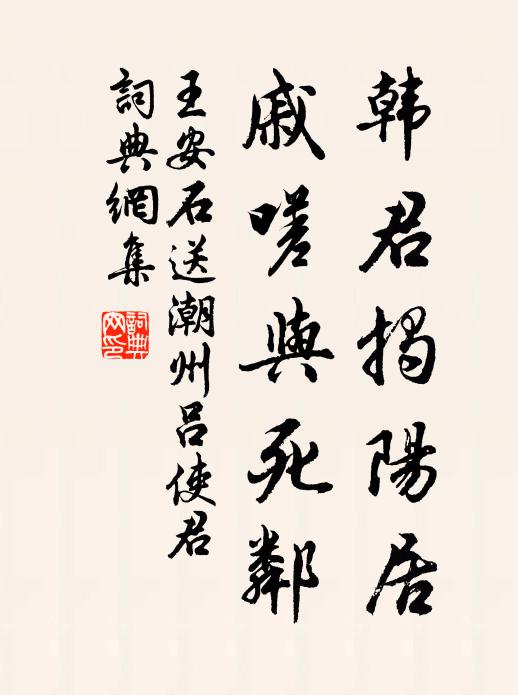 韩君揭陽居
戚嗟與死鄰
王安石送潮州吕使君
詞典網集
詞典網印